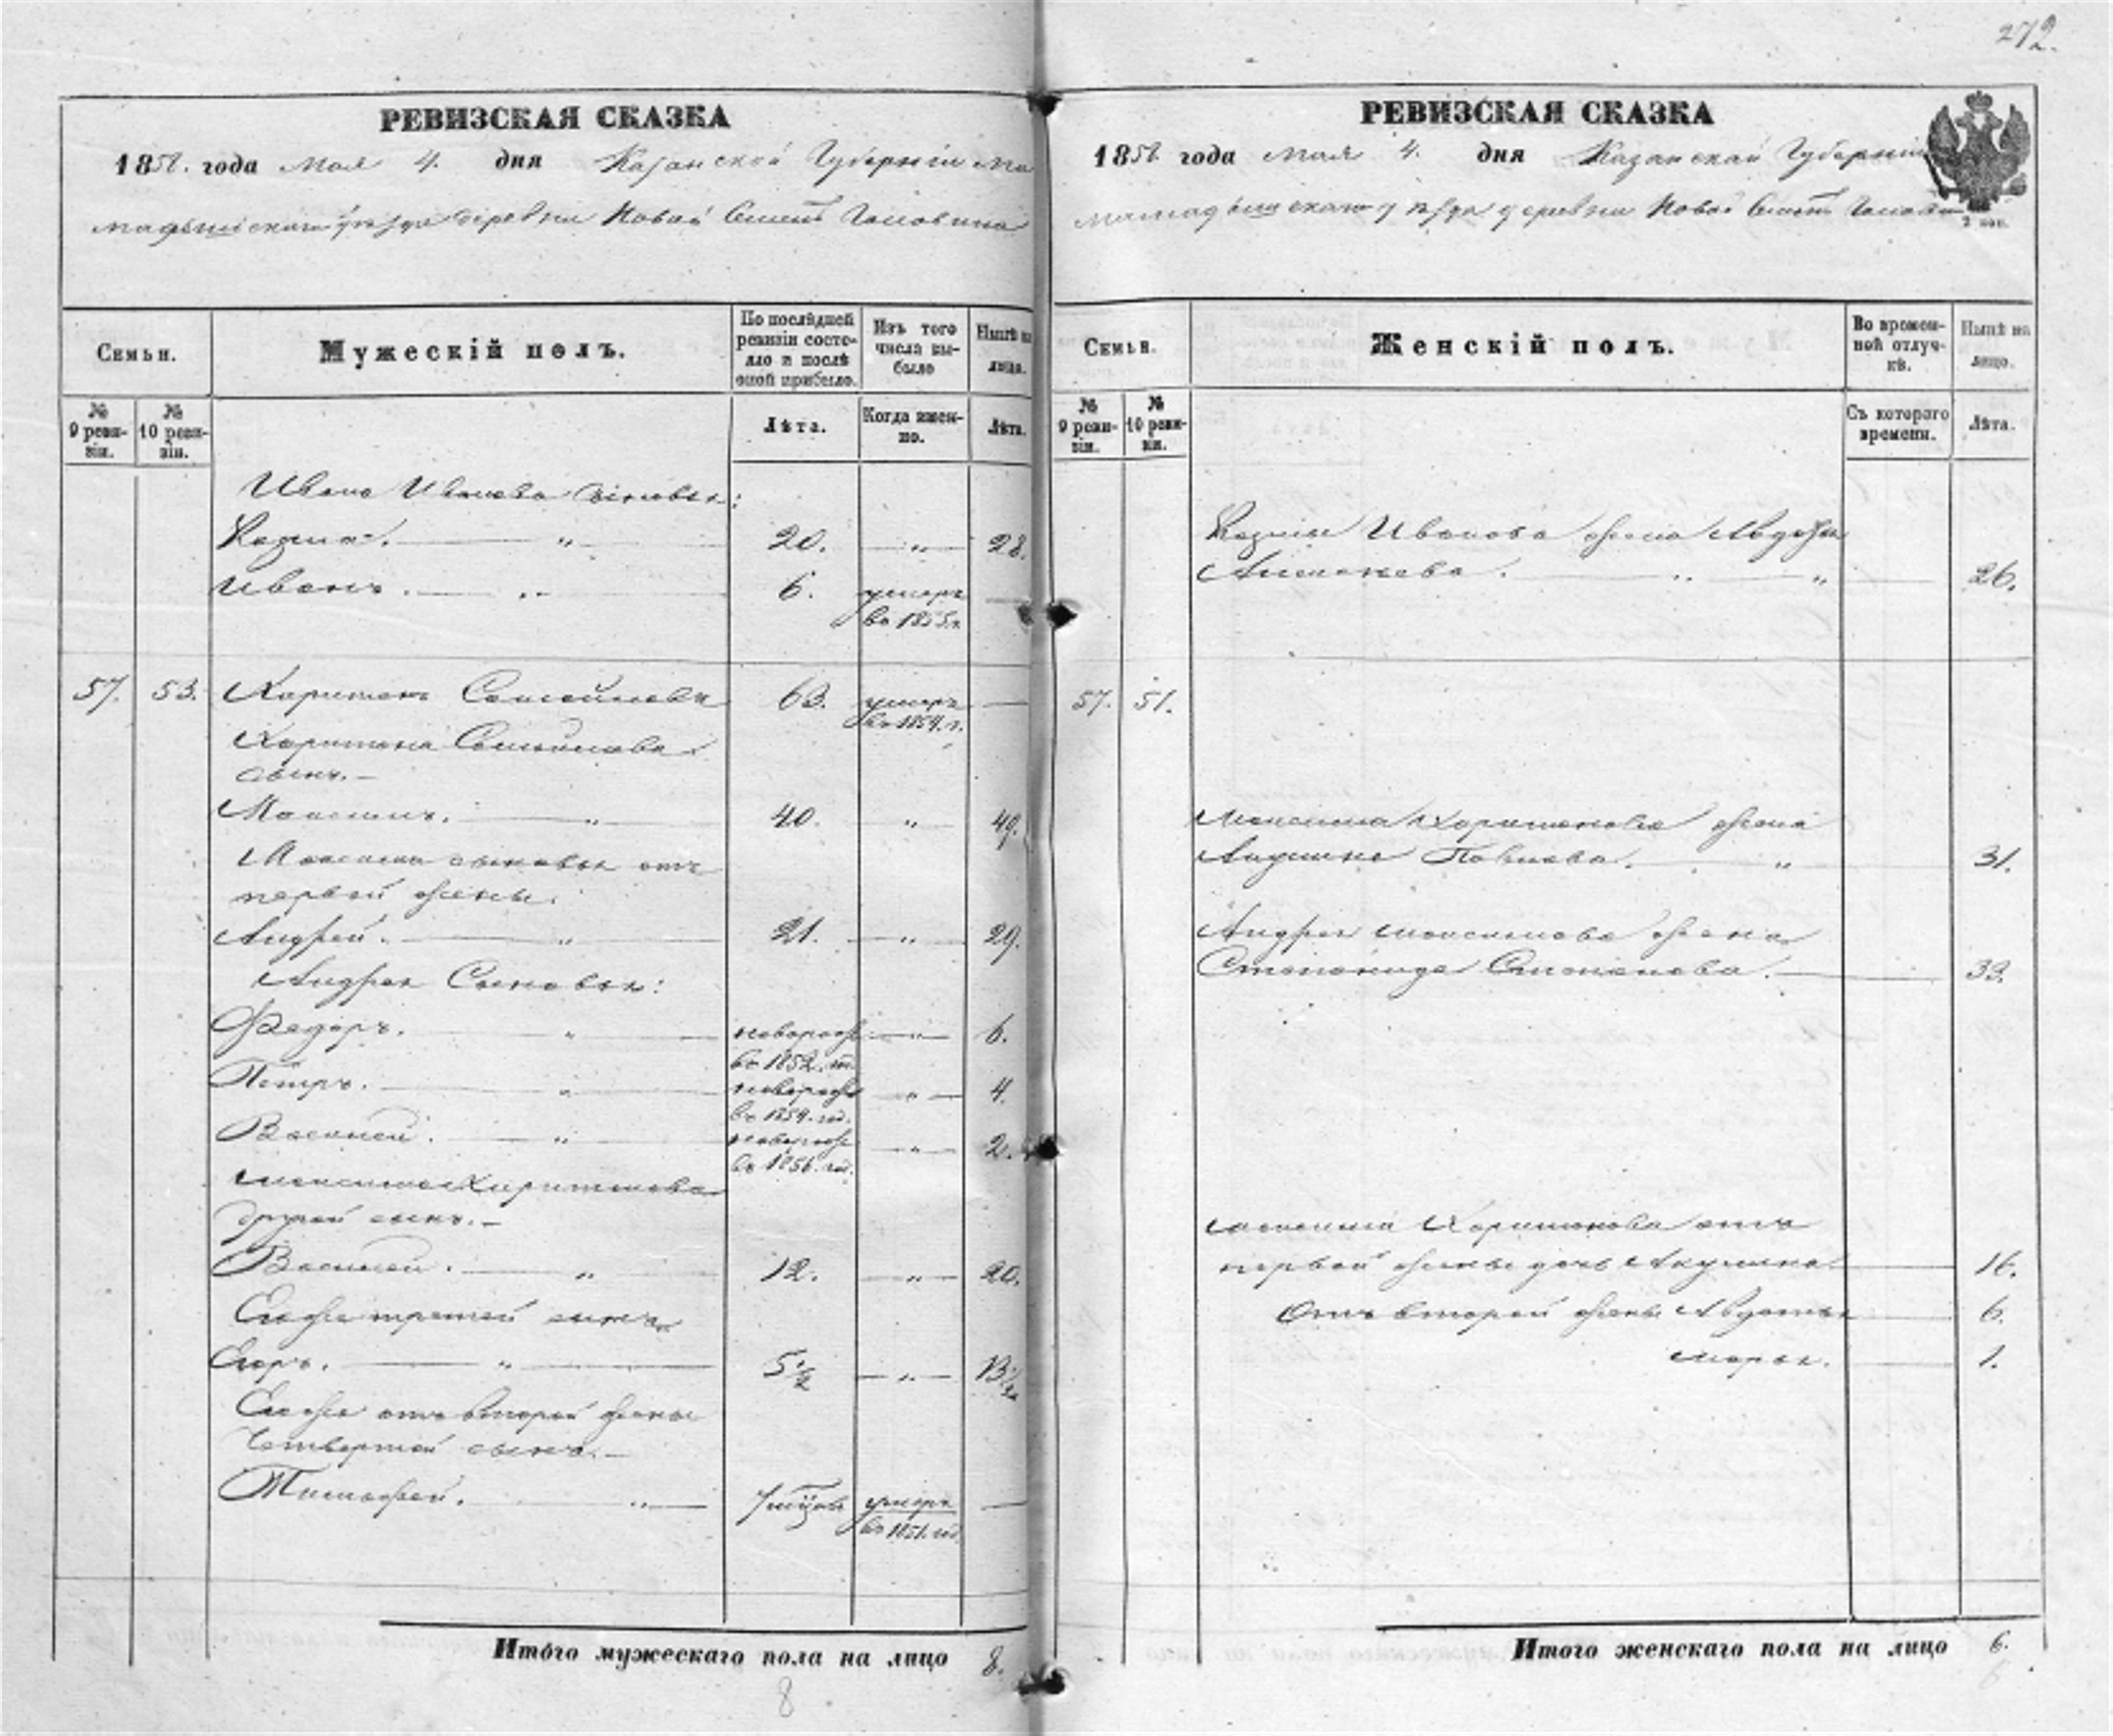 272.
РЕВИЗСКАЯ СКАЗКА
1858. года мая 4. дня Казанской Губерніи Ма
мадышскаго уѣзда деревни Новой
Семьи.
Мужескій полъ.
По послѣдней ревизіи состояло и послѣ оной прибыло.
Изъ того числа выбыло
Нынѣ на лицо.
№ 9 ревизіи.
№ 10 ревизіи.
Лѣта.
Когда именно.
Лѣта.
Ивана Иванова сыновья:
Козма. — „ 20. — „ — 28.
Иванъ. — „ — 6. умеръ —
въ 1855 г.
57. 53. Харитонъ 63. умеръ —
въ 1854. г.
Харитона
сынъ. —
Максимъ. — „ 40. „ — 49.
Максима сыновья отъ
первой жены:
Андрей. — „ — 21. — „ — 29.
Андрея Сыновья:
Федоръ. — „ — новорож — „ — 6.
въ 1852. год.
Петръ. — „ — новорож — „ — 4.
въ 1854. год.
Василей. — „ — новорож — „ — 2.
въ 1856. год.
Максима Харитонова
другой сынъ. —
Василей. — „ — 12. — „ — 20.
Егоже третей сынъ
Егоръ. — „ — 5 1/2 — „ — 13 1/2
Егоже отъ второй жены
Четвертой сынъ. —
Тимофей. „ — 7 умеръ —
въ 1851. год
Итого мужескаго пола на лицо 8.
8
РЕВИЗСКАЯ СКАЗКА
1858 года мая 4. дня Казанской Губерніи
мамадышскаго уѣзда деревни Новой
2 коп.
Семьи.
Женскій полъ.
Во временной отлучкѣ.
Нынѣ на лицо.
№ 9 ревизіи.
№ 10 ревизіи.
Съ котораго времени.
Лѣта.
Козмы Иванова жена
— „ „ — 26.
57. 51.
Максима Харитонова жена
Акулина Павлова. „ — 31.
Андрея Максимова жена
Степанида Степанова. — 33.
Максима Харитонова отъ
первой жены дочь Акулина — 16.
Отъ второй жены Авдотья — 6.
Марья. — 1.
Итого женскаго пола на лицо 6.
6